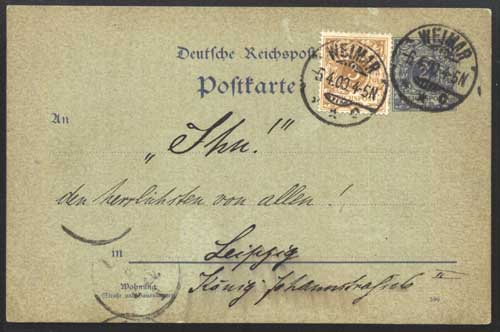 Deutsche Reichspost
Postkarte
WEIMAR
5.4.00.4-5N
* c
WEIMAR
5.4.00.4-5N
* c
An
„Ihn!"
den herrlichsten von allen!
in
Leipzig
Wohnung
König Johannstraße II